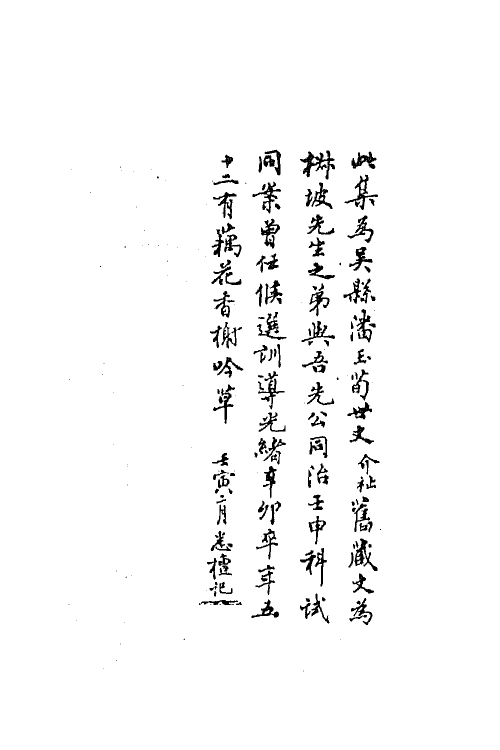 此集為吳縣潘玉荀世丈介祉舊藏丈為
椒坡先生之弟與吾先公同治壬申科試
同案曾任候選訓導光緒辛卯卒年五
十二有藕花香榭吟草
壬寅二月 檀記